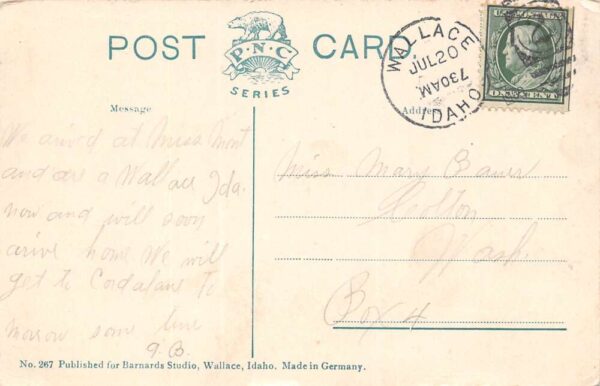 POST CARD
P·N·C
SERIES
WALLACE
JUL 20
730 AM
IDAHO
Message
Address
We arived at Miss Mont
and are a Wallace Ida.
now and will soon
arive home We will
get to Cordalane To
morow some time
G. B.
Miss Mary Bauer
Wash.
Box 4
No. 267 Published for Barnards Studio, Wallace, Idaho. Made in Germany.